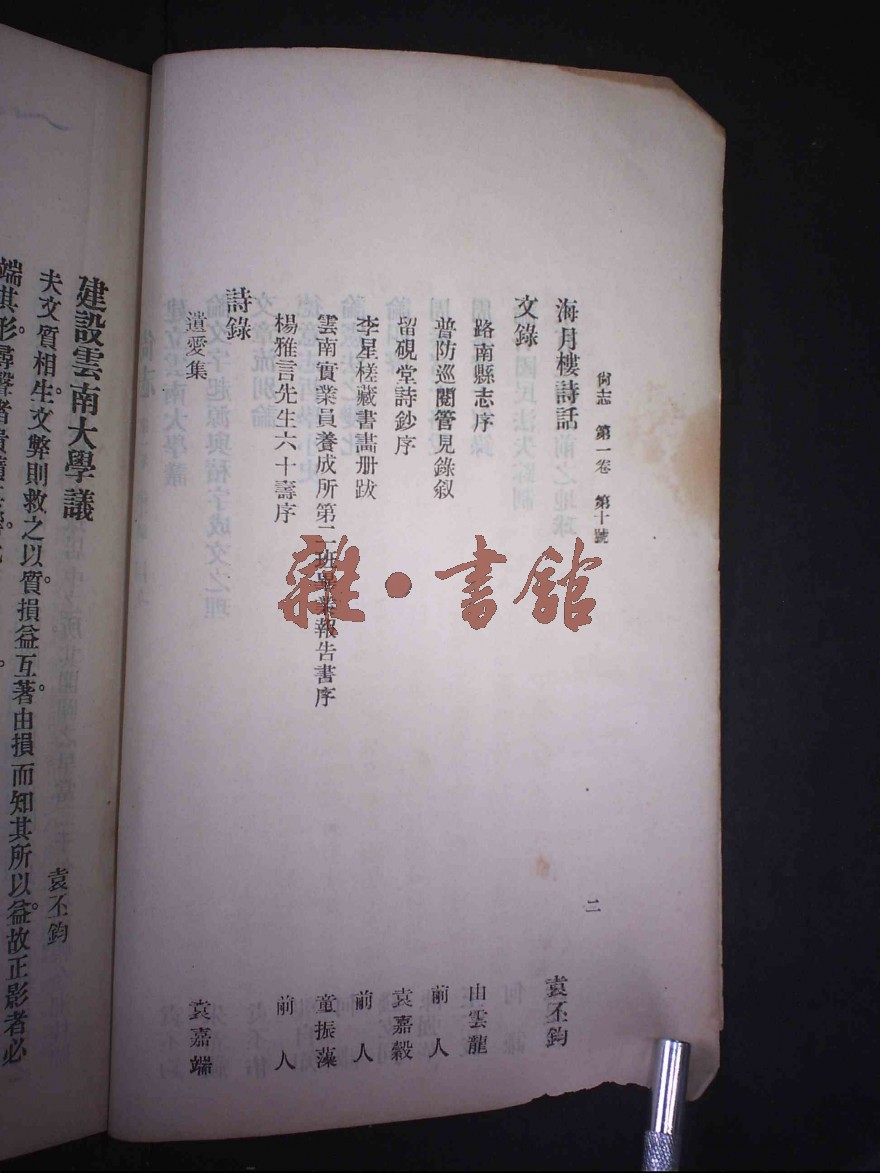 尙志　第一卷　第十號
二
海月樓詩話　袁丕鈞
文錄
路南縣志序　由雲龍
普防巡閱管見錄叙　前人
留硯堂詩鈔序　袁嘉穀
李星槎藏書畵册跋　前人
雲南實業員養成所第二班畢業報告書序　童振藻
楊雅言先生六十壽序　前人
詩錄
遺愛集　袁嘉端
雜·書館
建設雲南大學議
袁丕鈞
夫文質相生。文弊則救之以質。損益互著。由損而知其所以益。故正影者必
端其形。尋聲者